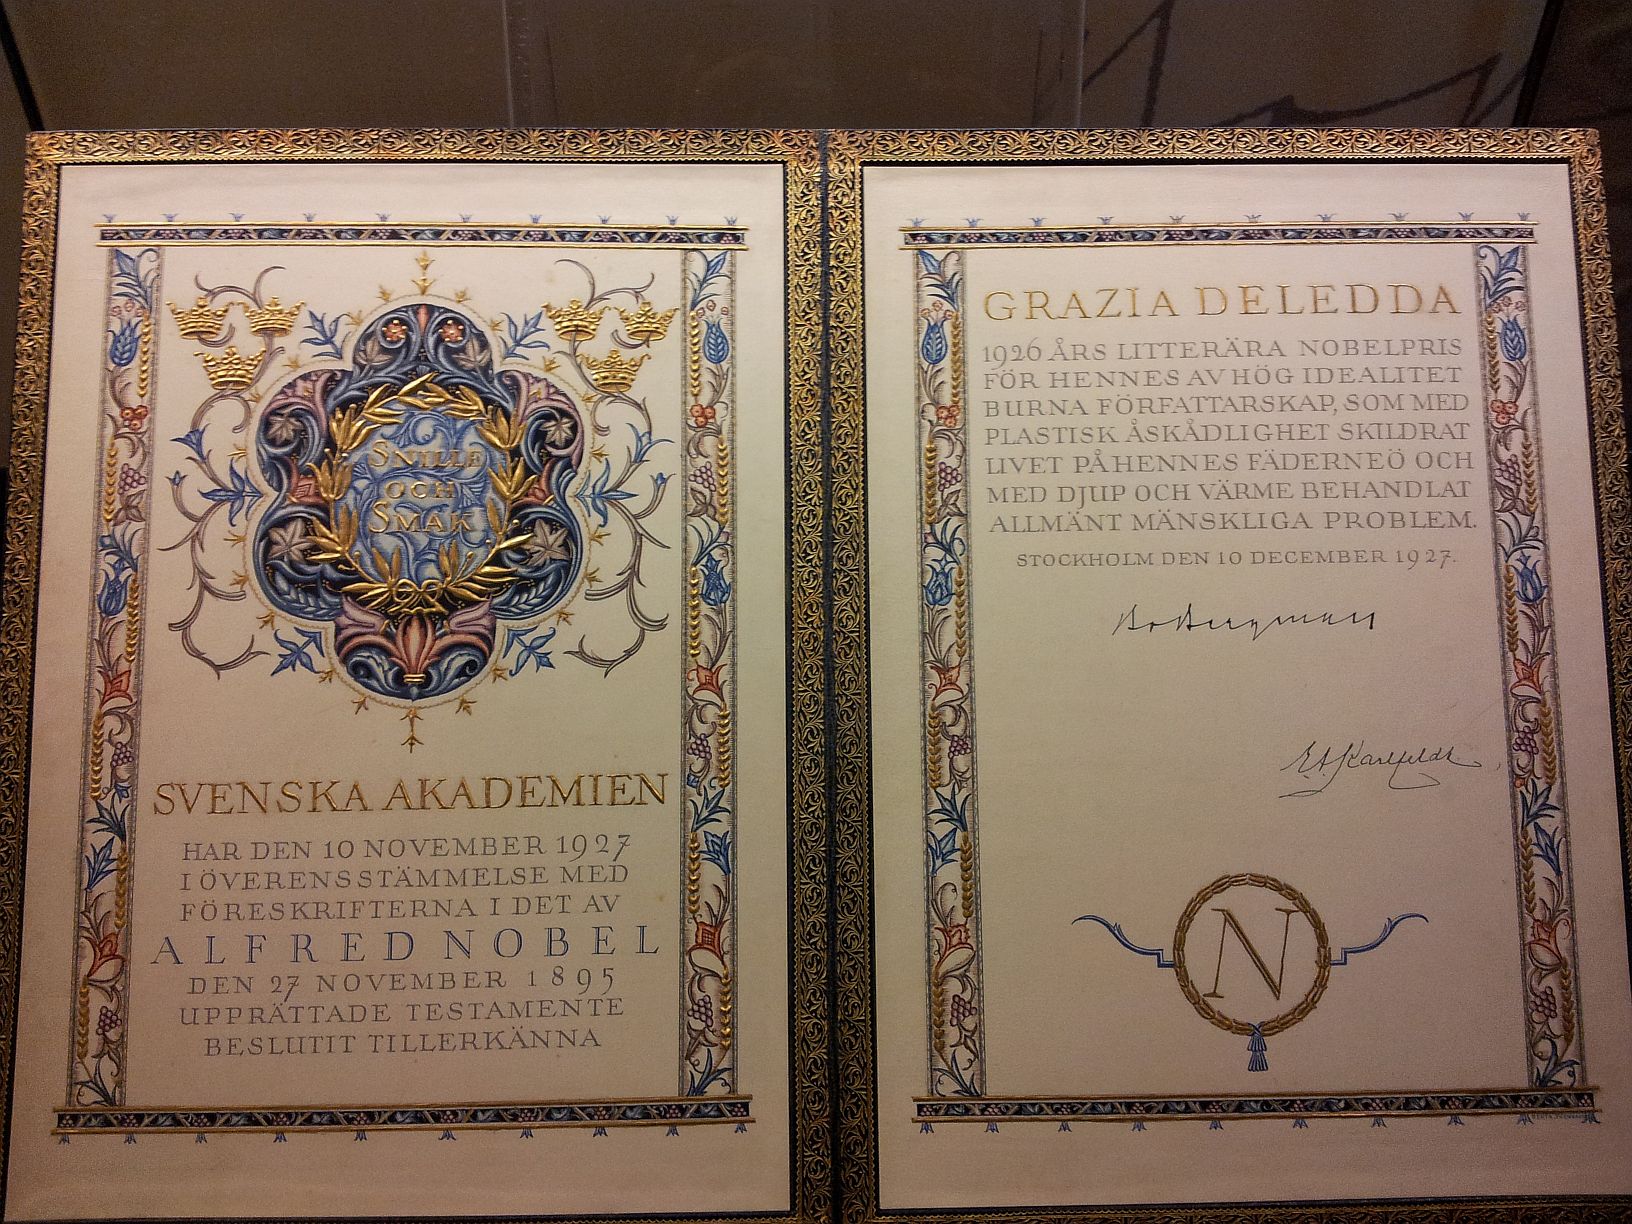 SNILLE
OCH
SMAK
SVENSKA AKADEMIEN
HAR DEN 10 NOVEMBER 1927
I ÖVERENSSTÄMMELSE MED
FÖRESKRIFTERNA I DET AV
ALFRED NOBEL
DEN 27 NOVEMBER 1895
UPPRÄTTADE TESTAMENTE
BESLUTIT TILLERKÄNNA
GRAZIA DELEDDA
1926 ÅRS LITTERÄRA NOBELPRIS
FÖR HENNES AV HÖG IDEALITET
BURNA FÖRFATTARSKAP, SOM MED
PLASTISK ÅSKÅDLIGHET SKILDRAT
LIVET PÅ HENNES FÄDERNEÖ OCH
MED DJUP OCH VÄRME BEHANDLAT
ALLMÄNT MÄNSKLIGA PROBLEM.
STOCKHOLM DEN 10 DECEMBER 1927.
Bo Bergman
E A Karlfeldt
N